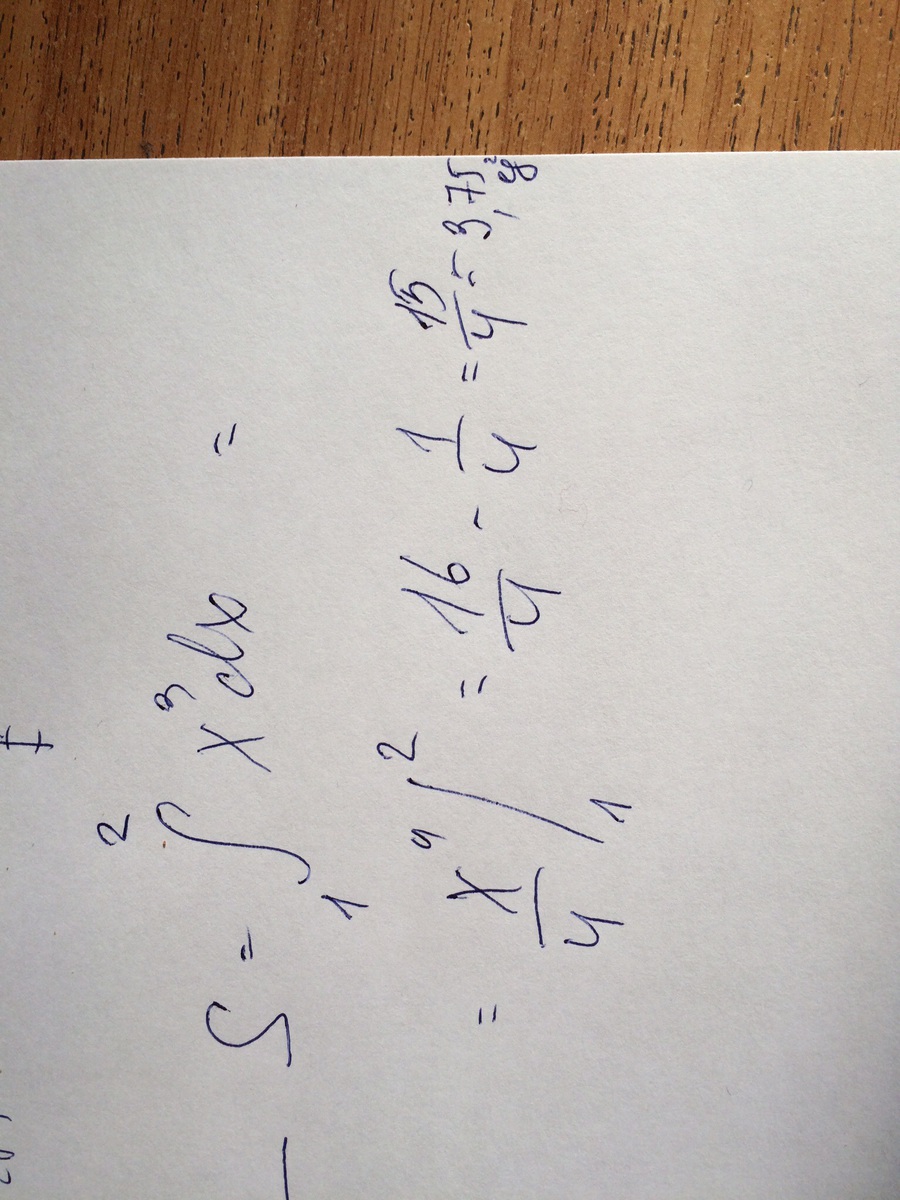 S = ∫₁² x³dx =
= x⁴/4 |₁² = 16/4 - 1/4 = 15/4 = 3,75